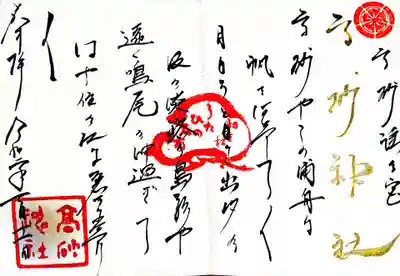 高砂神社
高砂やこの浦舟に
帆を上げて
月もろともに出汐の
波の淡路の島影や
遠く鳴尾の沖過ぎて
はや住の江に着きに
けり
奉拝 令和
高砂神社